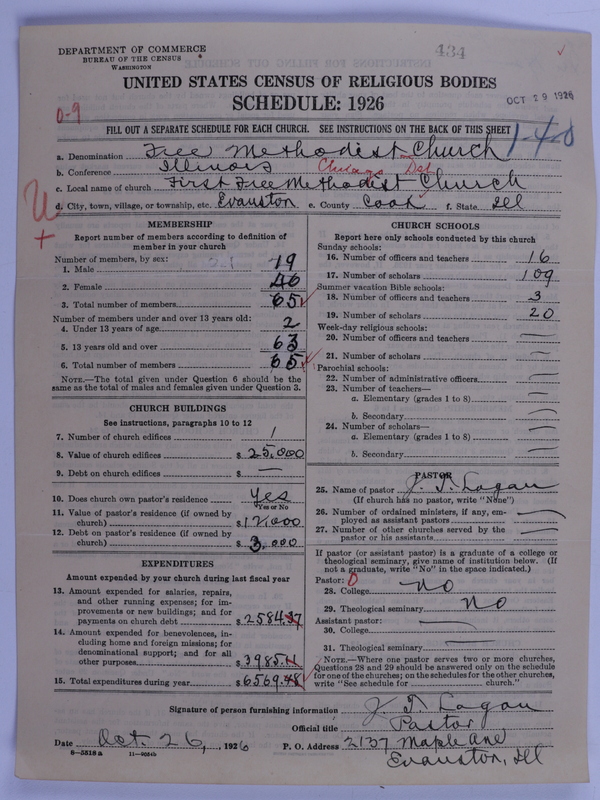 DEPARTMENT OF COMMERCE
BUREAU OF THE CENSUS
WASHINGTON
434
UNITED STATES CENSUS OF RELIGIOUS BODIES
SCHEDULE: 1926
OCT 29 1926
0-9
FILL OUT A SEPARATE SCHEDULE FOR EACH CHURCH. SEE INSTRUCTIONS ON THE BACK OF THIS SHEET
1-4-0
a. Denomination Free Methodist Church
b. Conference Illinois Chicago Dist
c. Local name of church First Free Methodist Church
d. City, town, village, or township, etc. Evanston e. County Cook f. State Ill
MEMBERSHIP
Report number of members according to definition of member in your church
Number of members, by sex:
1. Male 19
2. Female 46
3. Total number of members 65
Number of members under and over 13 years old:
4. Under 13 years of age 2
5. 13 years old and over 63
6. Total number of members 65
NOTE.—The total given under Question 6 should be the same as the total of males and females given under Question 3.
CHURCH BUILDINGS
See instructions, paragraphs 10 to 12
7. Number of church edifices 1
8. Value of church edifices $ 25,000
9. Debt on church edifices $ —
10. Does church own pastor's residence Yes
Yes or No
11. Value of pastor's residence (if owned by church) $ 12,000
12. Debt on pastor's residence (if owned by church) $ 3,000
EXPENDITURES
Amount expended by your church during last fiscal year
13. Amount expended for salaries, repairs, and other running expenses; for improvements or new buildings; and for payments on church debt $ 2584.37
14. Amount expended for benevolences, including home and foreign missions; for denominational support; and for all other purposes $ 3985.11
15. Total expenditures during year $ 6569.48
CHURCH SCHOOLS
Report here only schools conducted by this church
Sunday schools:
16. Number of officers and teachers 16
17. Number of scholars 109
Summer vacation Bible schools:
18. Number of officers and teachers 3
19. Number of scholars 20
Week-day religious schools:
20. Number of officers and teachers —
21. Number of scholars —
Parochial schools:
22. Number of administrative officers —
23. Number of teachers—
a. Elementary (grades 1 to 8) —
b. Secondary —
24. Number of scholars—
a. Elementary (grades 1 to 8) —
b. Secondary —
PASTOR
25. Name of pastor J. T. Logan
(If church has no pastor, write "None")
26. Number of ordained ministers, if any, employed as assistant pastors —
27. Number of other churches served by the pastor or his assistants —
If pastor (or assistant pastor) is a graduate of a college or theological seminary, give name of institution below. (If not a graduate, write "No" in the space indicated.)
Pastor: 0
28. College no
29. Theological seminary no
Assistant pastor:
30. College —
31. Theological seminary —
NOTE.—Where one pastor serves two or more churches, Questions 28 and 29 should be answered only on the schedule for one of the churches; on the schedules for the other churches, write "See schedule for ______ church."
Signature of person furnishing information J. T. Logan
Official title Pastor
Date Oct. 26, , 1926 P. O. Address 2137 Maple Ave
Evanston, Ill
8-5518 a 11-9034b